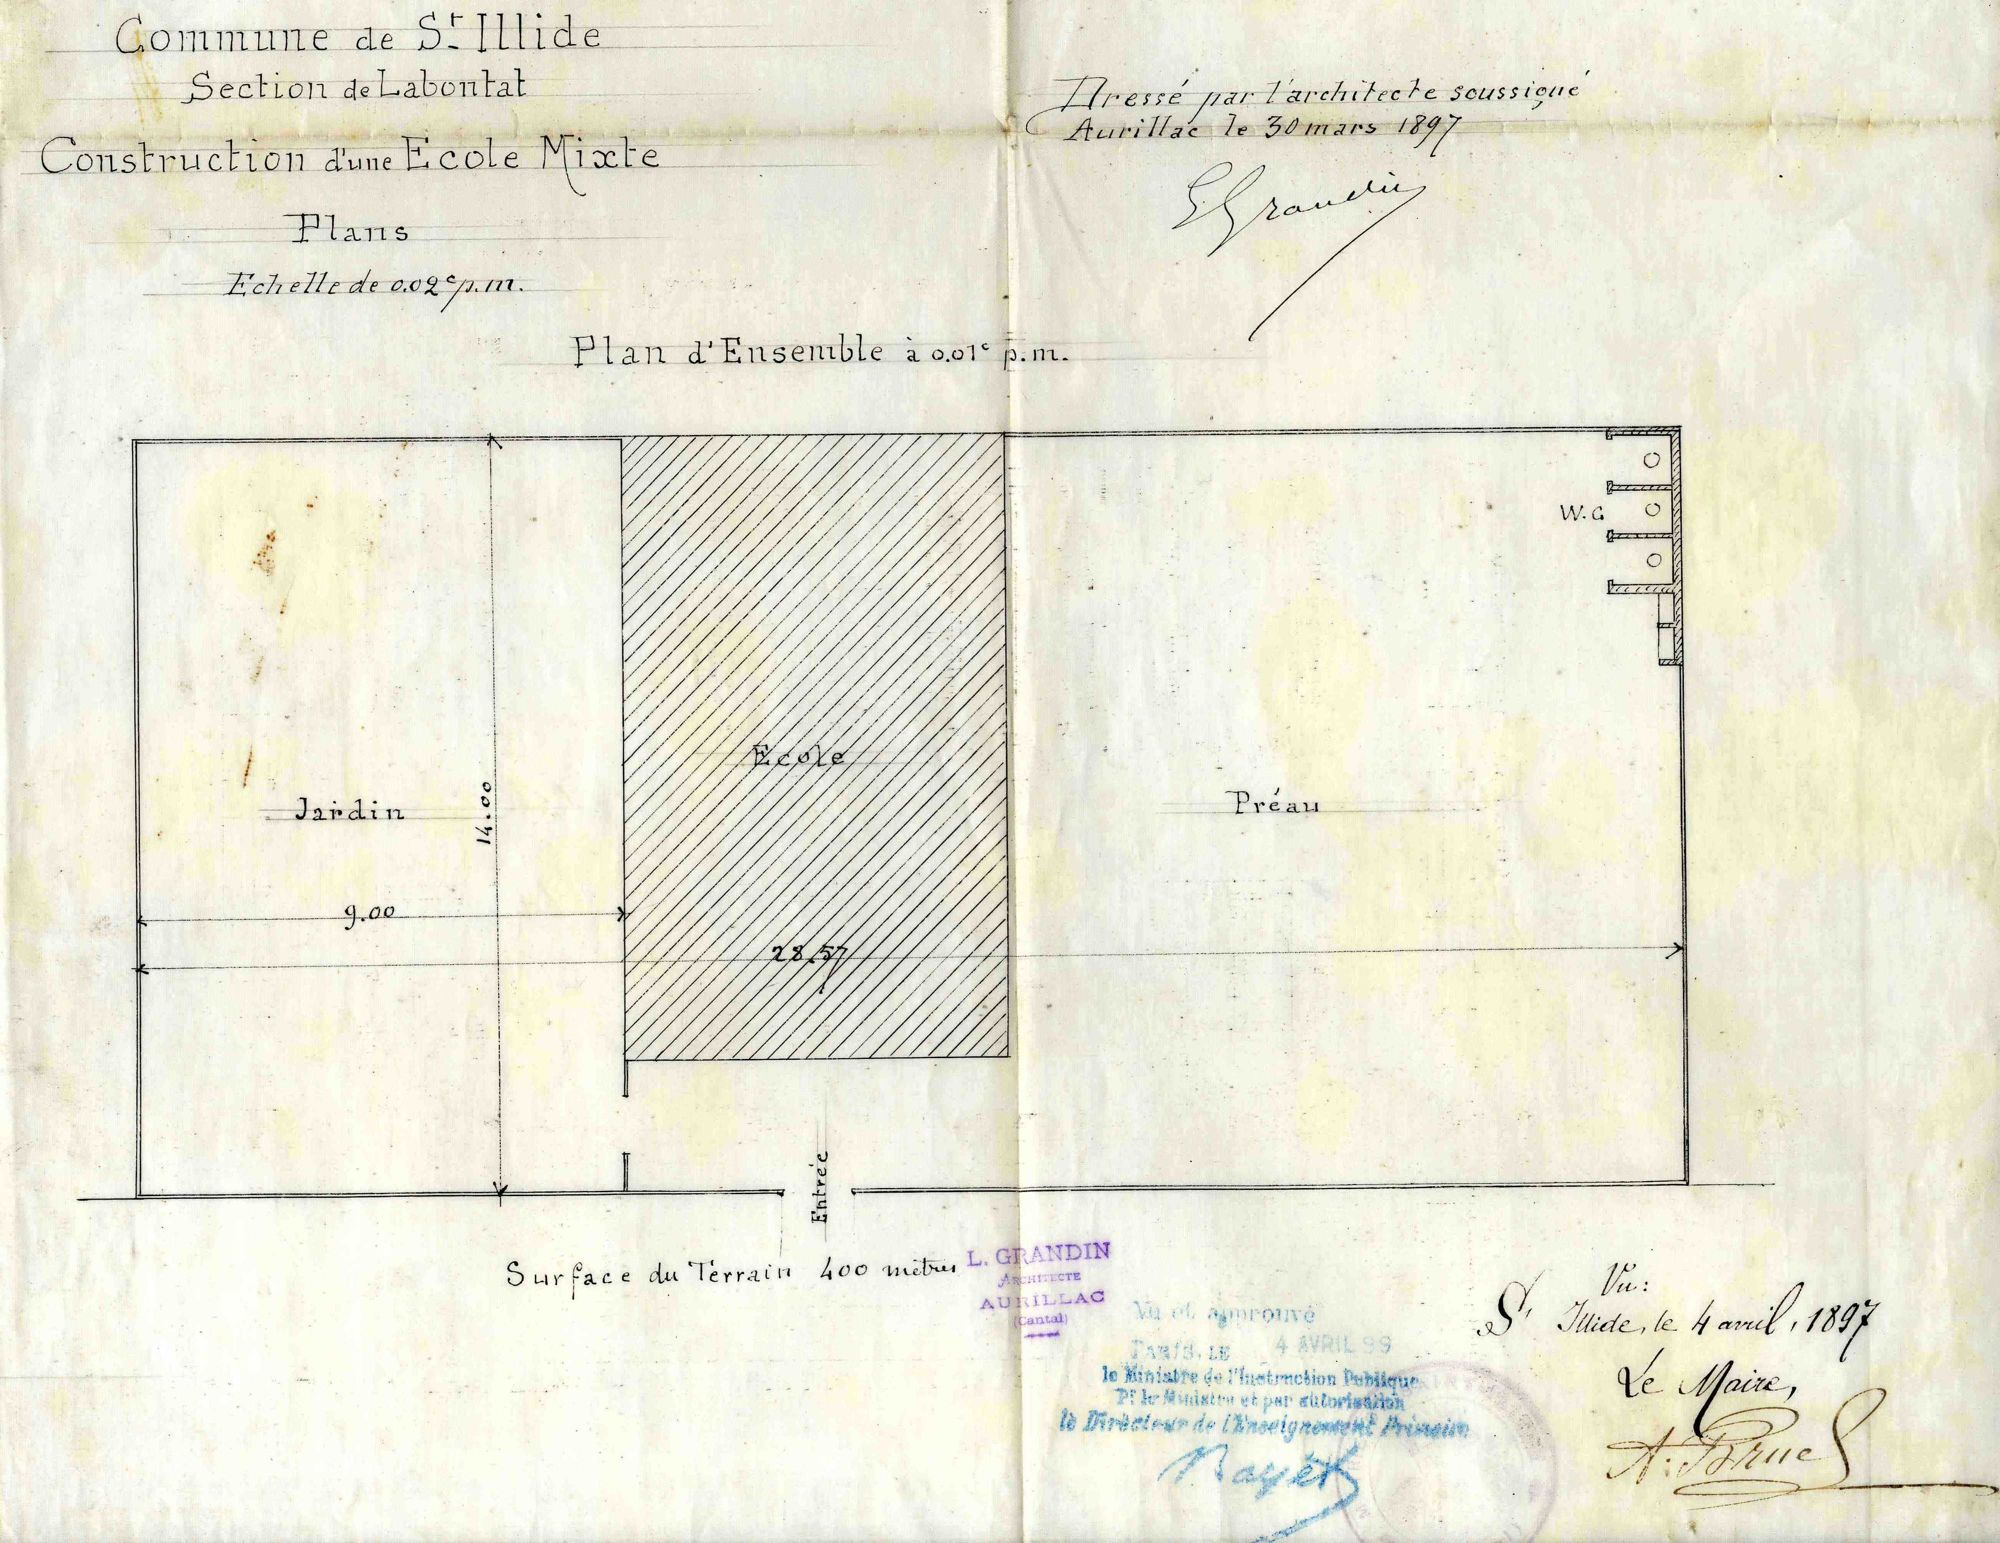 Commune de St Illide
Section de Labontat
Construction d'une Ecole Mixte
Plans
Echelle de 0.02c p.m.
Dressé par l'architecte soussigné
Aurillac le 30 mars 1897
Grandin
Plan d'Ensemble à 0.01c p.m.
W.C
Ecole
Jardin
14.00
Préau
9.00
28.57
Entrée
Surface du Terrain 400 mètres
L. GRANDIN
ARCHITECTE
AURILLAC
(Cantal)
Vu et approuvé
PARIS, LE 4 AVRIL 99
le Ministre de l'Instruction Publique
Pr le Ministre et par autorisation
le Directeur de l'Enseignement Primaire
Bayet
Vu:
St Illide, le 4 avril, 1897
Le Maire,
A. Bruel